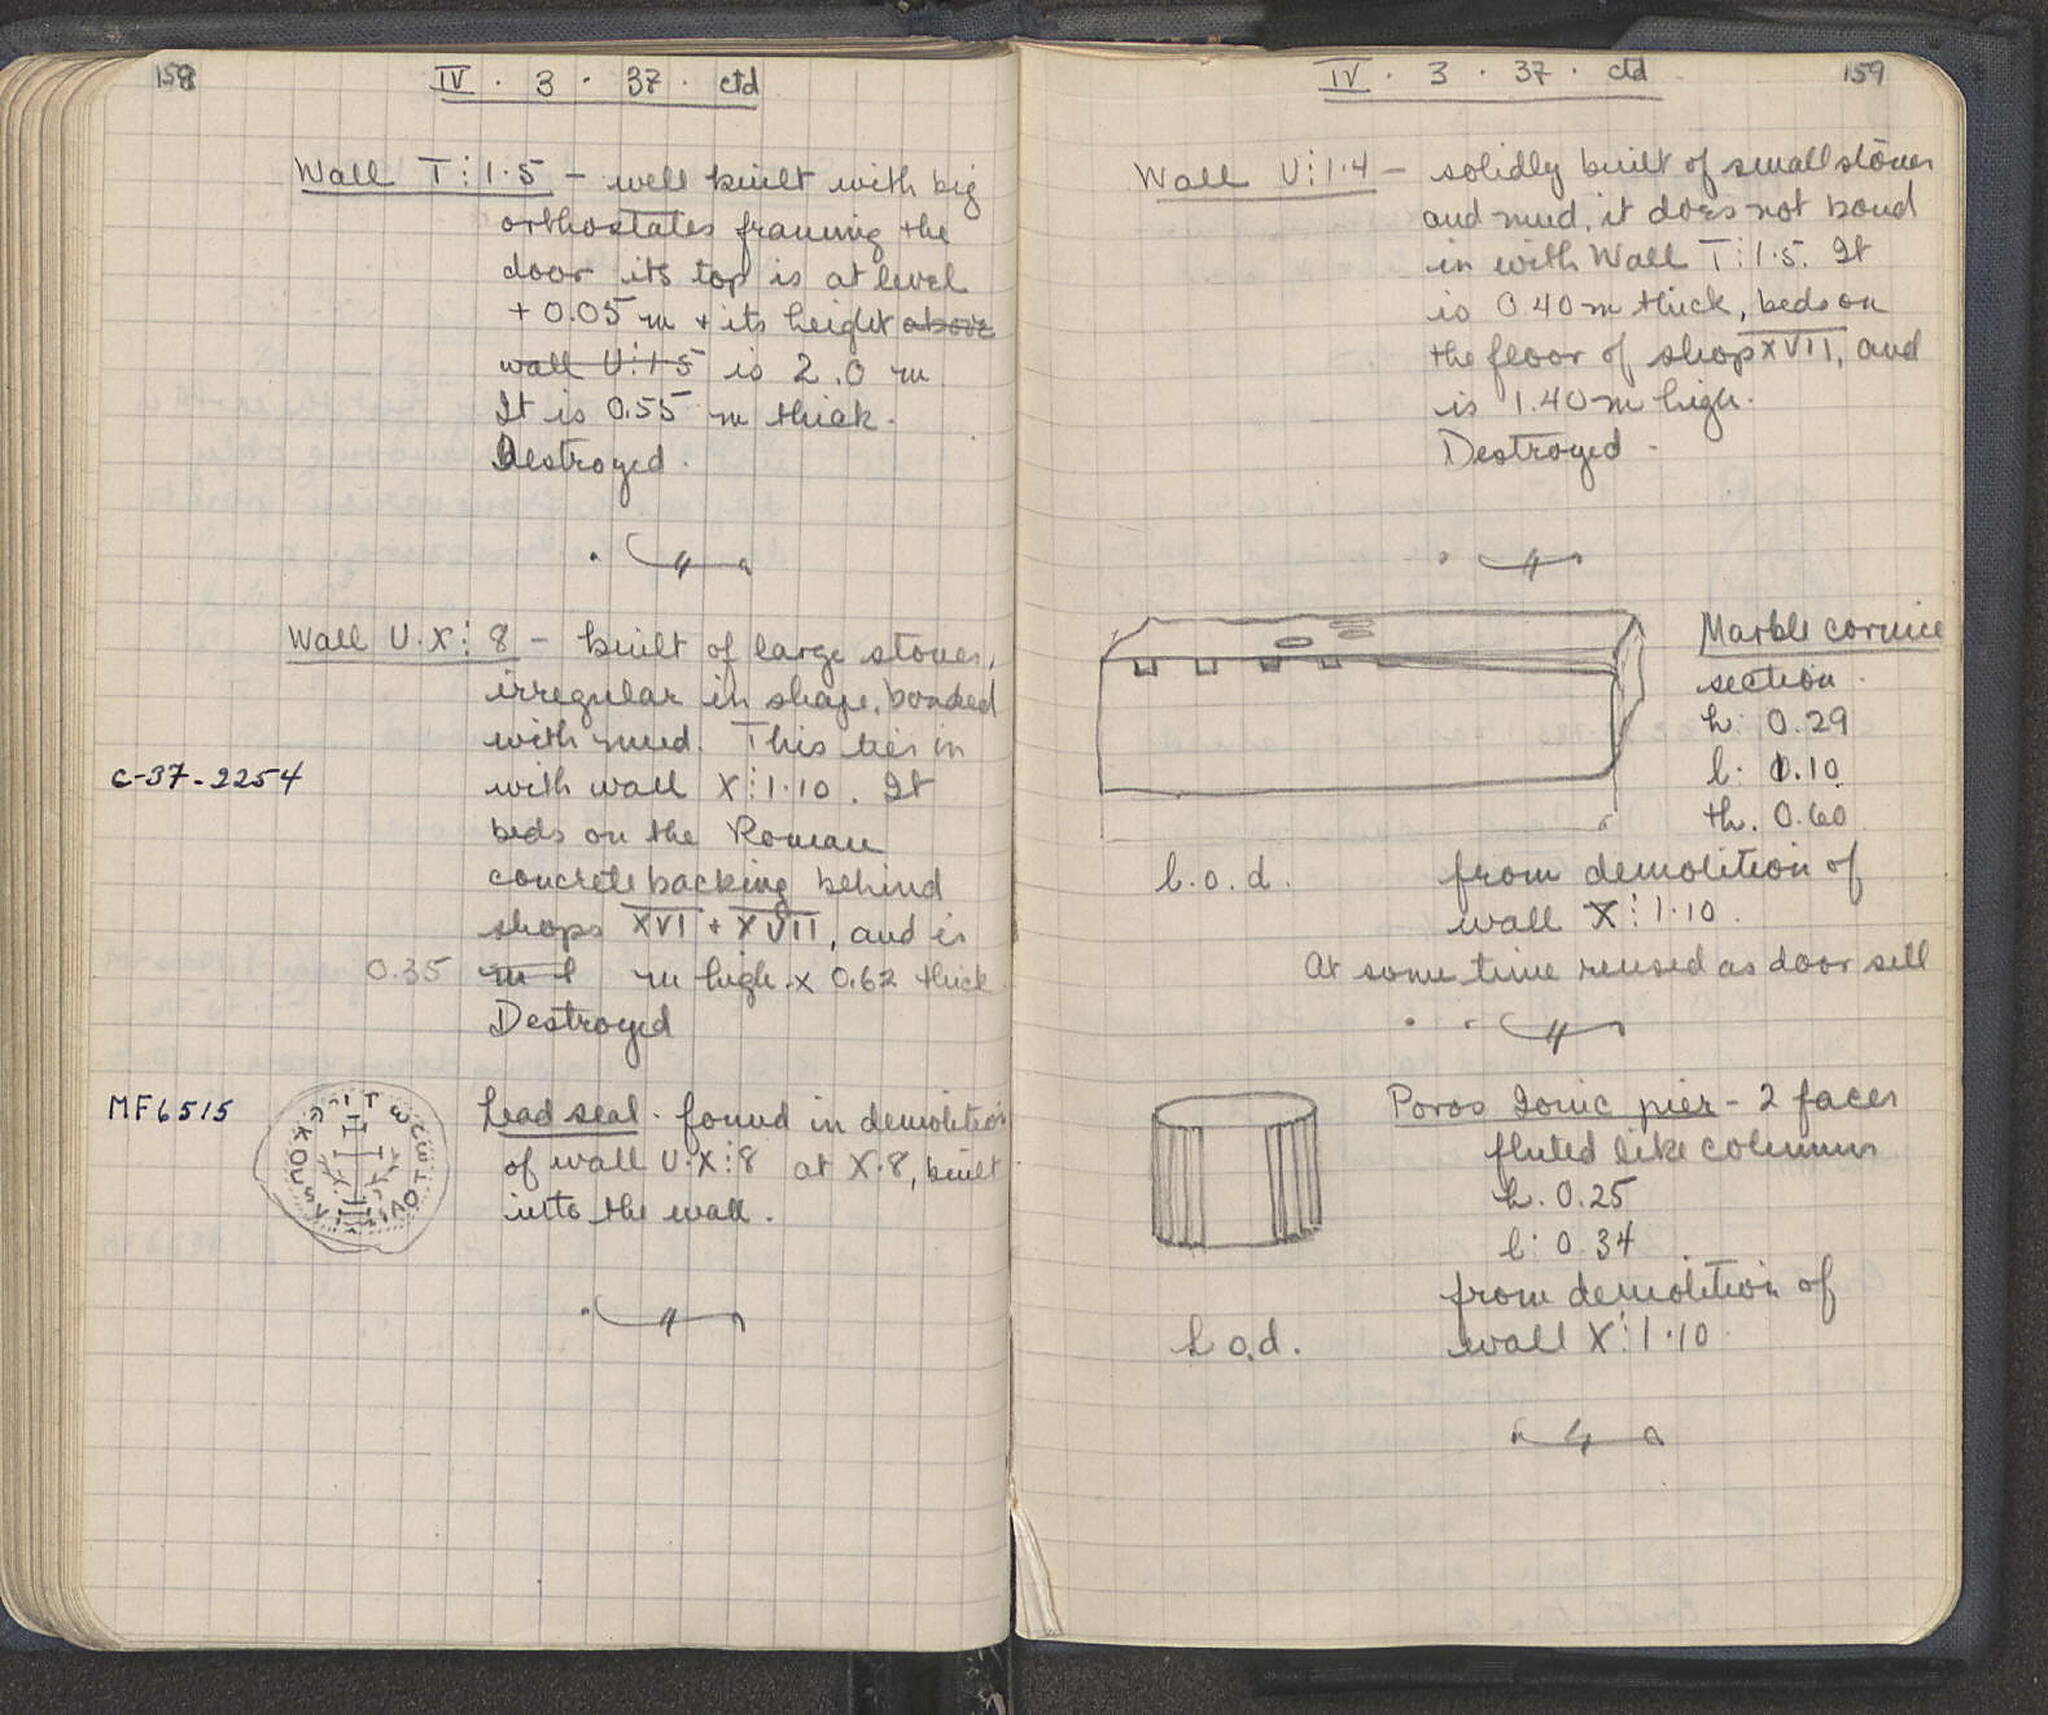 158
IV . 3 . 37 . ctd
Wall T:1.5 - well built with big
orthostates framing the
door its top is at level
+ 0.05 m + its height above
wall U:1.5 is 2.0 m
It is 0.55 m thick.
Destroyed.
Wall U.X:8 - built of large stones,
irregular in shape, bonded
with mud. This ties in
C-37-2254
with wall X:1.10. It
beds on the Roman
concrete backing behind
shops XVI + XVII, and is
0.35 m high x 0.62 thick
Destroyed
MF6515
Lead seal - found in demolition
of wall U.X:8 at X.8, built
into the wall.
IV . 3 . 37 . ctd
159
Wall U:1.4 - solidly built of small stones
and mud, it does not bond
in with Wall T:1.5. It
is 0.40 m thick, beds on
the floor of shop XVII, and
is 1.40 m high.
Destroyed -
Marble cornice
section.
h: 0.29
l: 1.10
th. 0.60
l.o.d.
from demolition of
wall X:1.10.
At some time reused as door sill
Poros Ionic pier - 2 faces
fluted like columns
h. 0.25
l: 0.34
from demolition of
l.o.d.
wall X:1.10